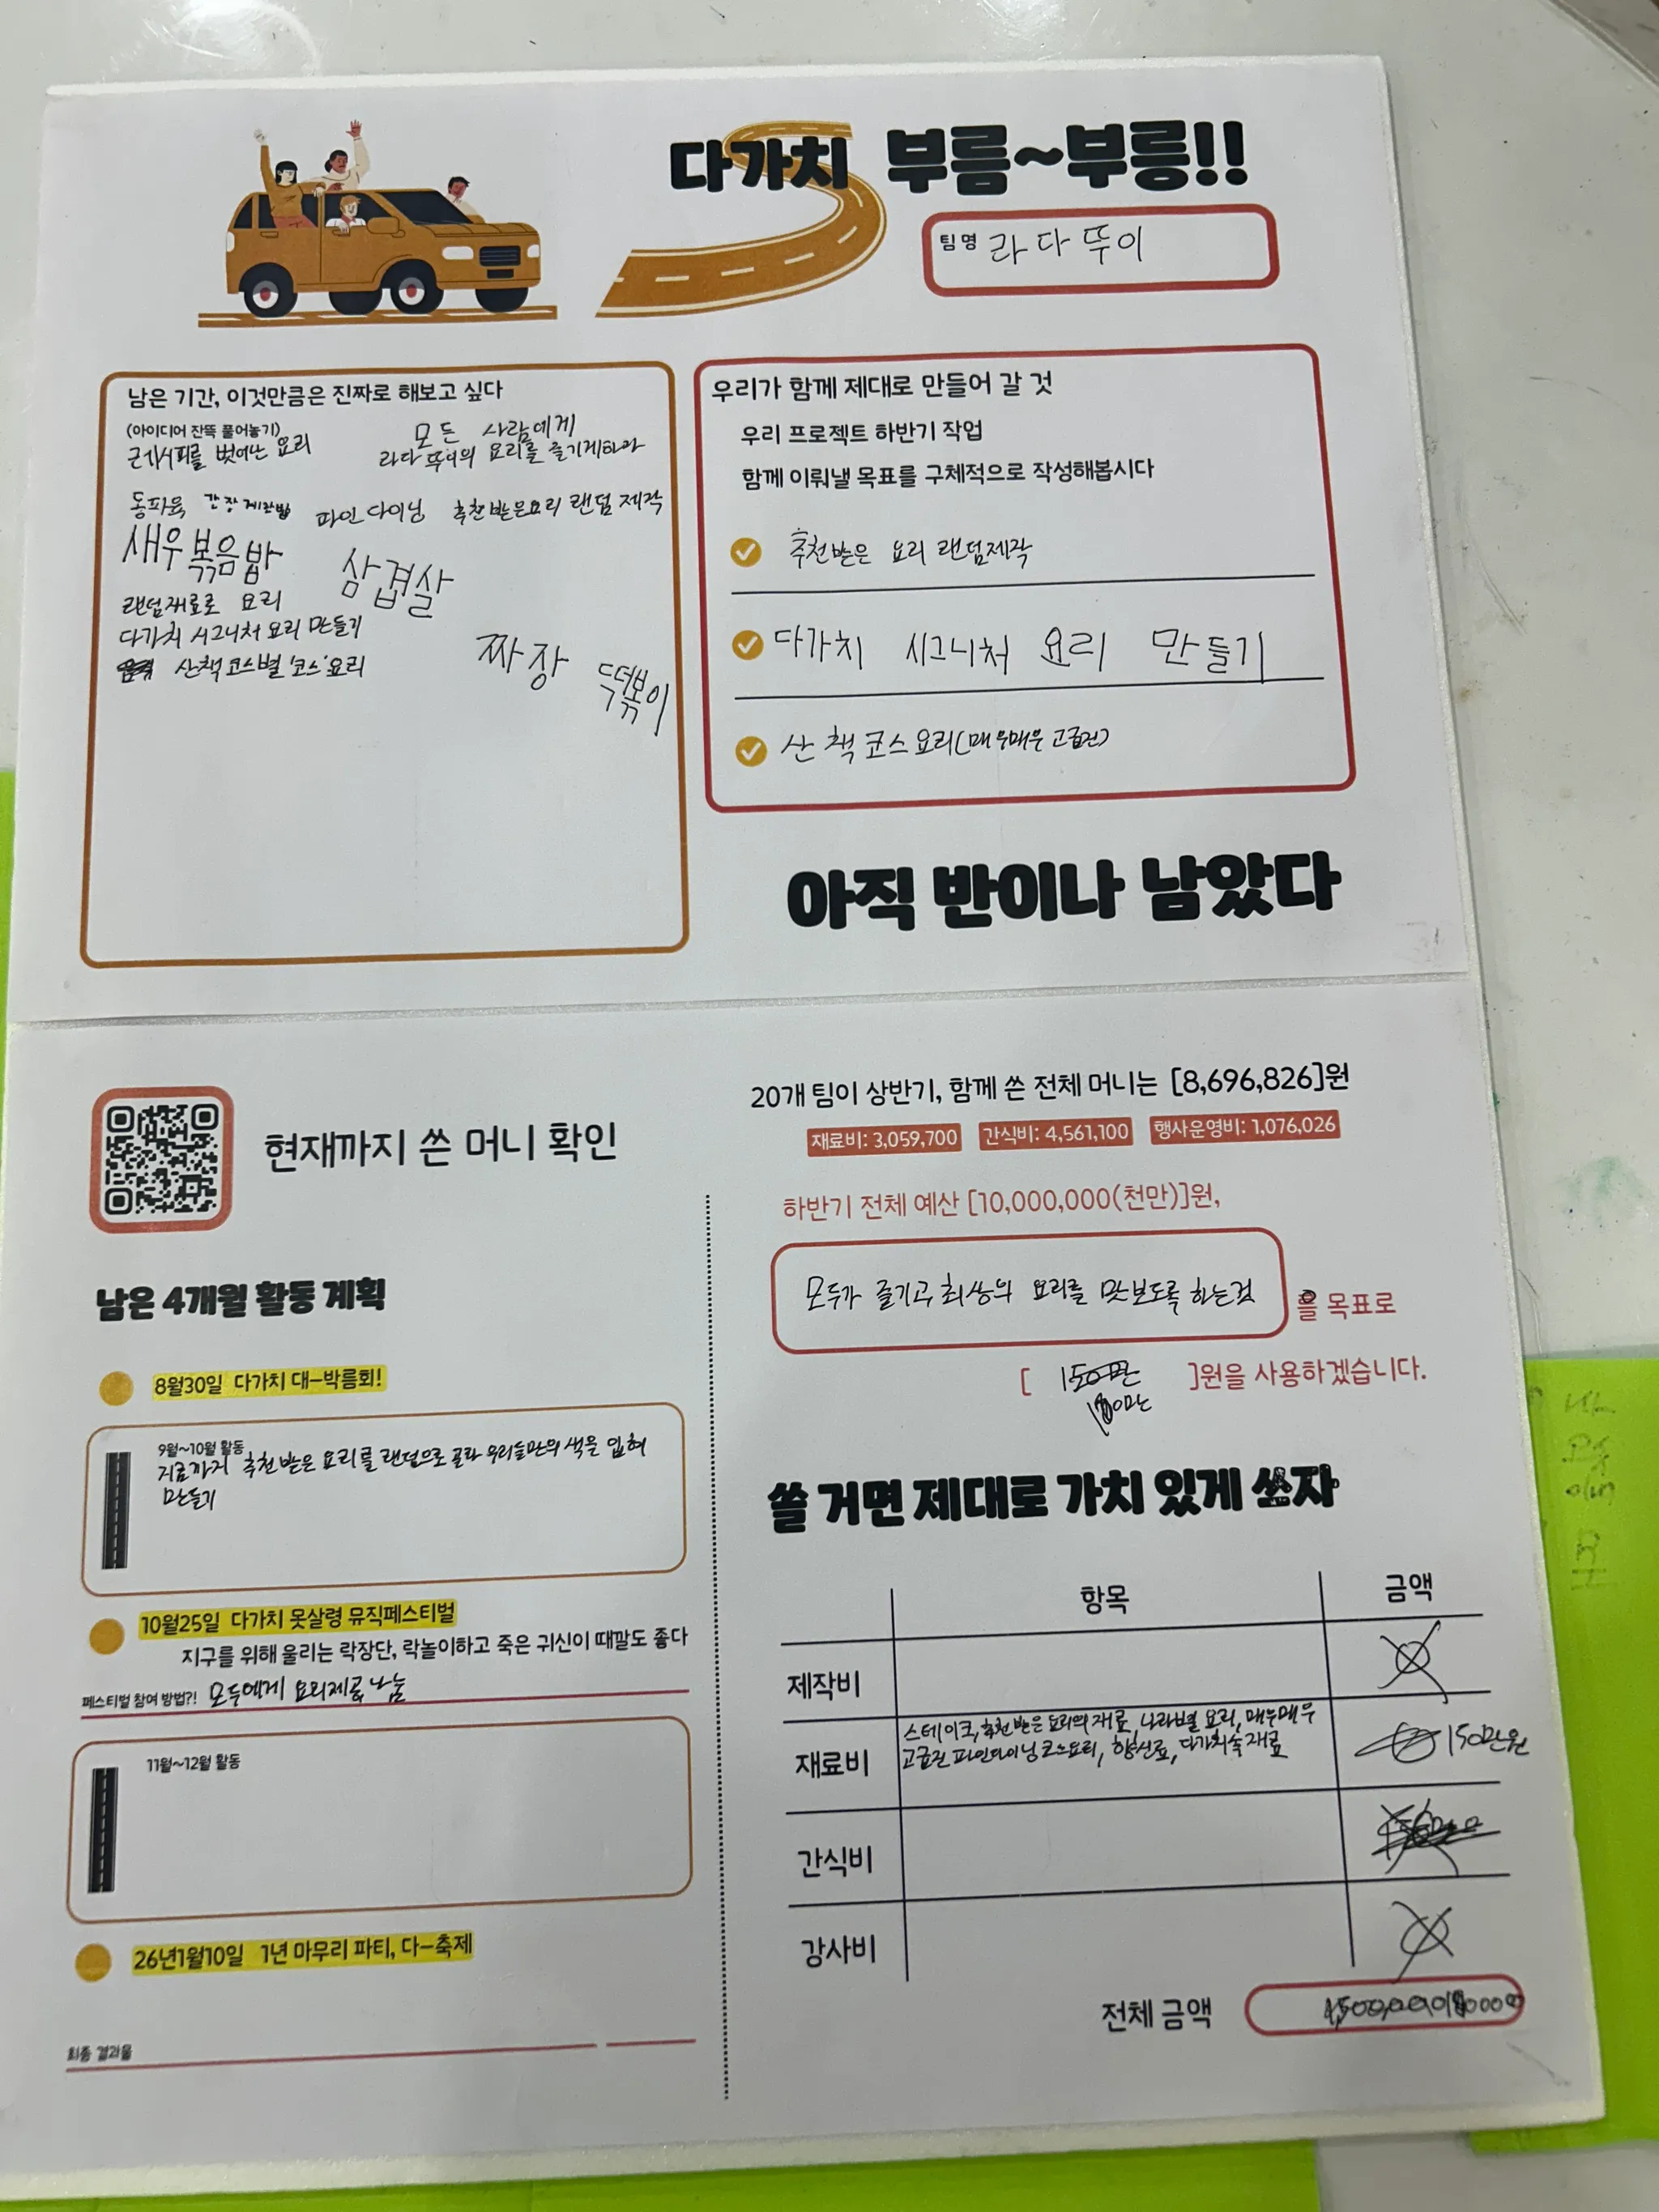 다가치 부름~부릉!!
팀명 라따뚜이
남은 기간, 이것만큼은 진짜로 해보고 싶다
(아이디어 잔뜩 풀어놓기)
모든 사람에게
요리를 즐기게하라
벗어난 요리
동파육 간장계란밥 파인다이닝 추천받은요리 랜덤 제작
새우볶음밥
삼겹살
랜덤재료로 요리
다가치 시그니처 요리 만들기
산책코스별 '코스'요리
짜장
떡볶이
우리가 함께 제대로 만들어 갈 것
우리 프로젝트 하반기 작업
함께 이뤄낼 목표를 구체적으로 작성해봅시다
추천받은 요리 랜덤제작
다가치 시그니처 요리 만들기
산책코스요리(매우매우 고급진)
아직 반이나 남았다
현재까지 쓴 머니 확인
남은 4개월 활동 계획
8월30일 다가치 대-박름회!
9월~10월 활동
지금까지 추천받은 요리를 랜덤으로 골라 우리들만의 색을 입혀
만들기
10월25일 다가치 못살령 뮤직페스티벌
지구를 위해 울리는 락장단, 락놀이하고 죽은 귀신이 때깔도 좋다
페스티벌 참여 방법?! 모두에게 요리제공, 나눔
11월~12월 활동
26년1월10일 1년 마무리 파티, 다-축제
최종 결과물
20개 팀이 상반기, 함께 쓴 전체 머니는 [8,696,826]원
재료비: 3,059,700 간식비: 4,561,100 행사운영비: 1,076,026
하반기 전체 예산 [10,000,000(천만)]원,
모두가 즐기고 최상의 요리를 맛보도록 하는것
을 목표로
[ 150만 ]원을 사용하겠습니다.
쓸 거면 제대로 가치 있게 쓰자
항목 금액
제작비
재료비 스테이크, 추천받은 요리의 재료, 나라별 요리, 매우매우
고급진 파인다이닝 코스요리, 향신료, 다가치숲 재료 150만원
간식비
강사비
전체 금액